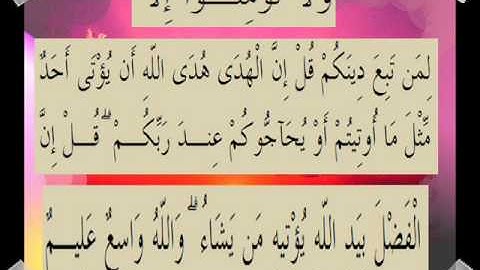 وَلَا تُؤْمِنُوا إِلَّا
لِمَن تَبِعَ دِينَكُمْ قُلْ إِنَّ الْهُدَى هُدَى اللّهِ أَن يُؤْتَى أَحَدٌ
مِّثْلَ مَا أُوتِيتُمْ أَوْ يُحَآجُّوكُمْ عِندَ رَبِّكُمْ ۗ قُلْ إِنَّ
الْفَضْلَ بِيَدِ اللّهِ يُؤْتِيهِ مَن يَشَاءُ ۗ وَاللّهُ وَاسِعٌ عَلِيمٌ